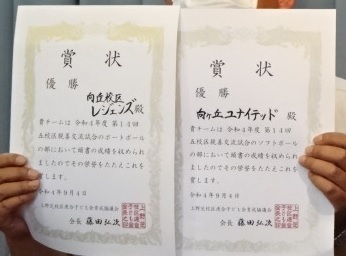 賞状
優勝
向丘校区
レジェンズ 殿
貴チームは令和4年度第14回
五校区親善交流試合のポートボール
の部において頭書の成績を収められ
ましたのでその栄誉をたたえこれを
賞します。
令和4年9月4日
上野芝校区連合子ども会育成協議会
会長 藤田弘次
賞状
優勝
向ヶ丘ユナイテッド 殿
貴チームは令和4年度第14回
五校区親善交流試合のソフトボール
の部において頭書の成績を収められ
ましたのでその栄誉をたたえこれを
賞します。
令和4年9月4日
上野芝校区連合子ども会育成協議会
会長 藤田弘次